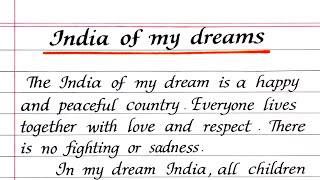 India of my dreams
The India of my dream is a happy
and peaceful country. Everyone lives
together with love and respect. There
is no fighting or sadness.
In my dream India, all children